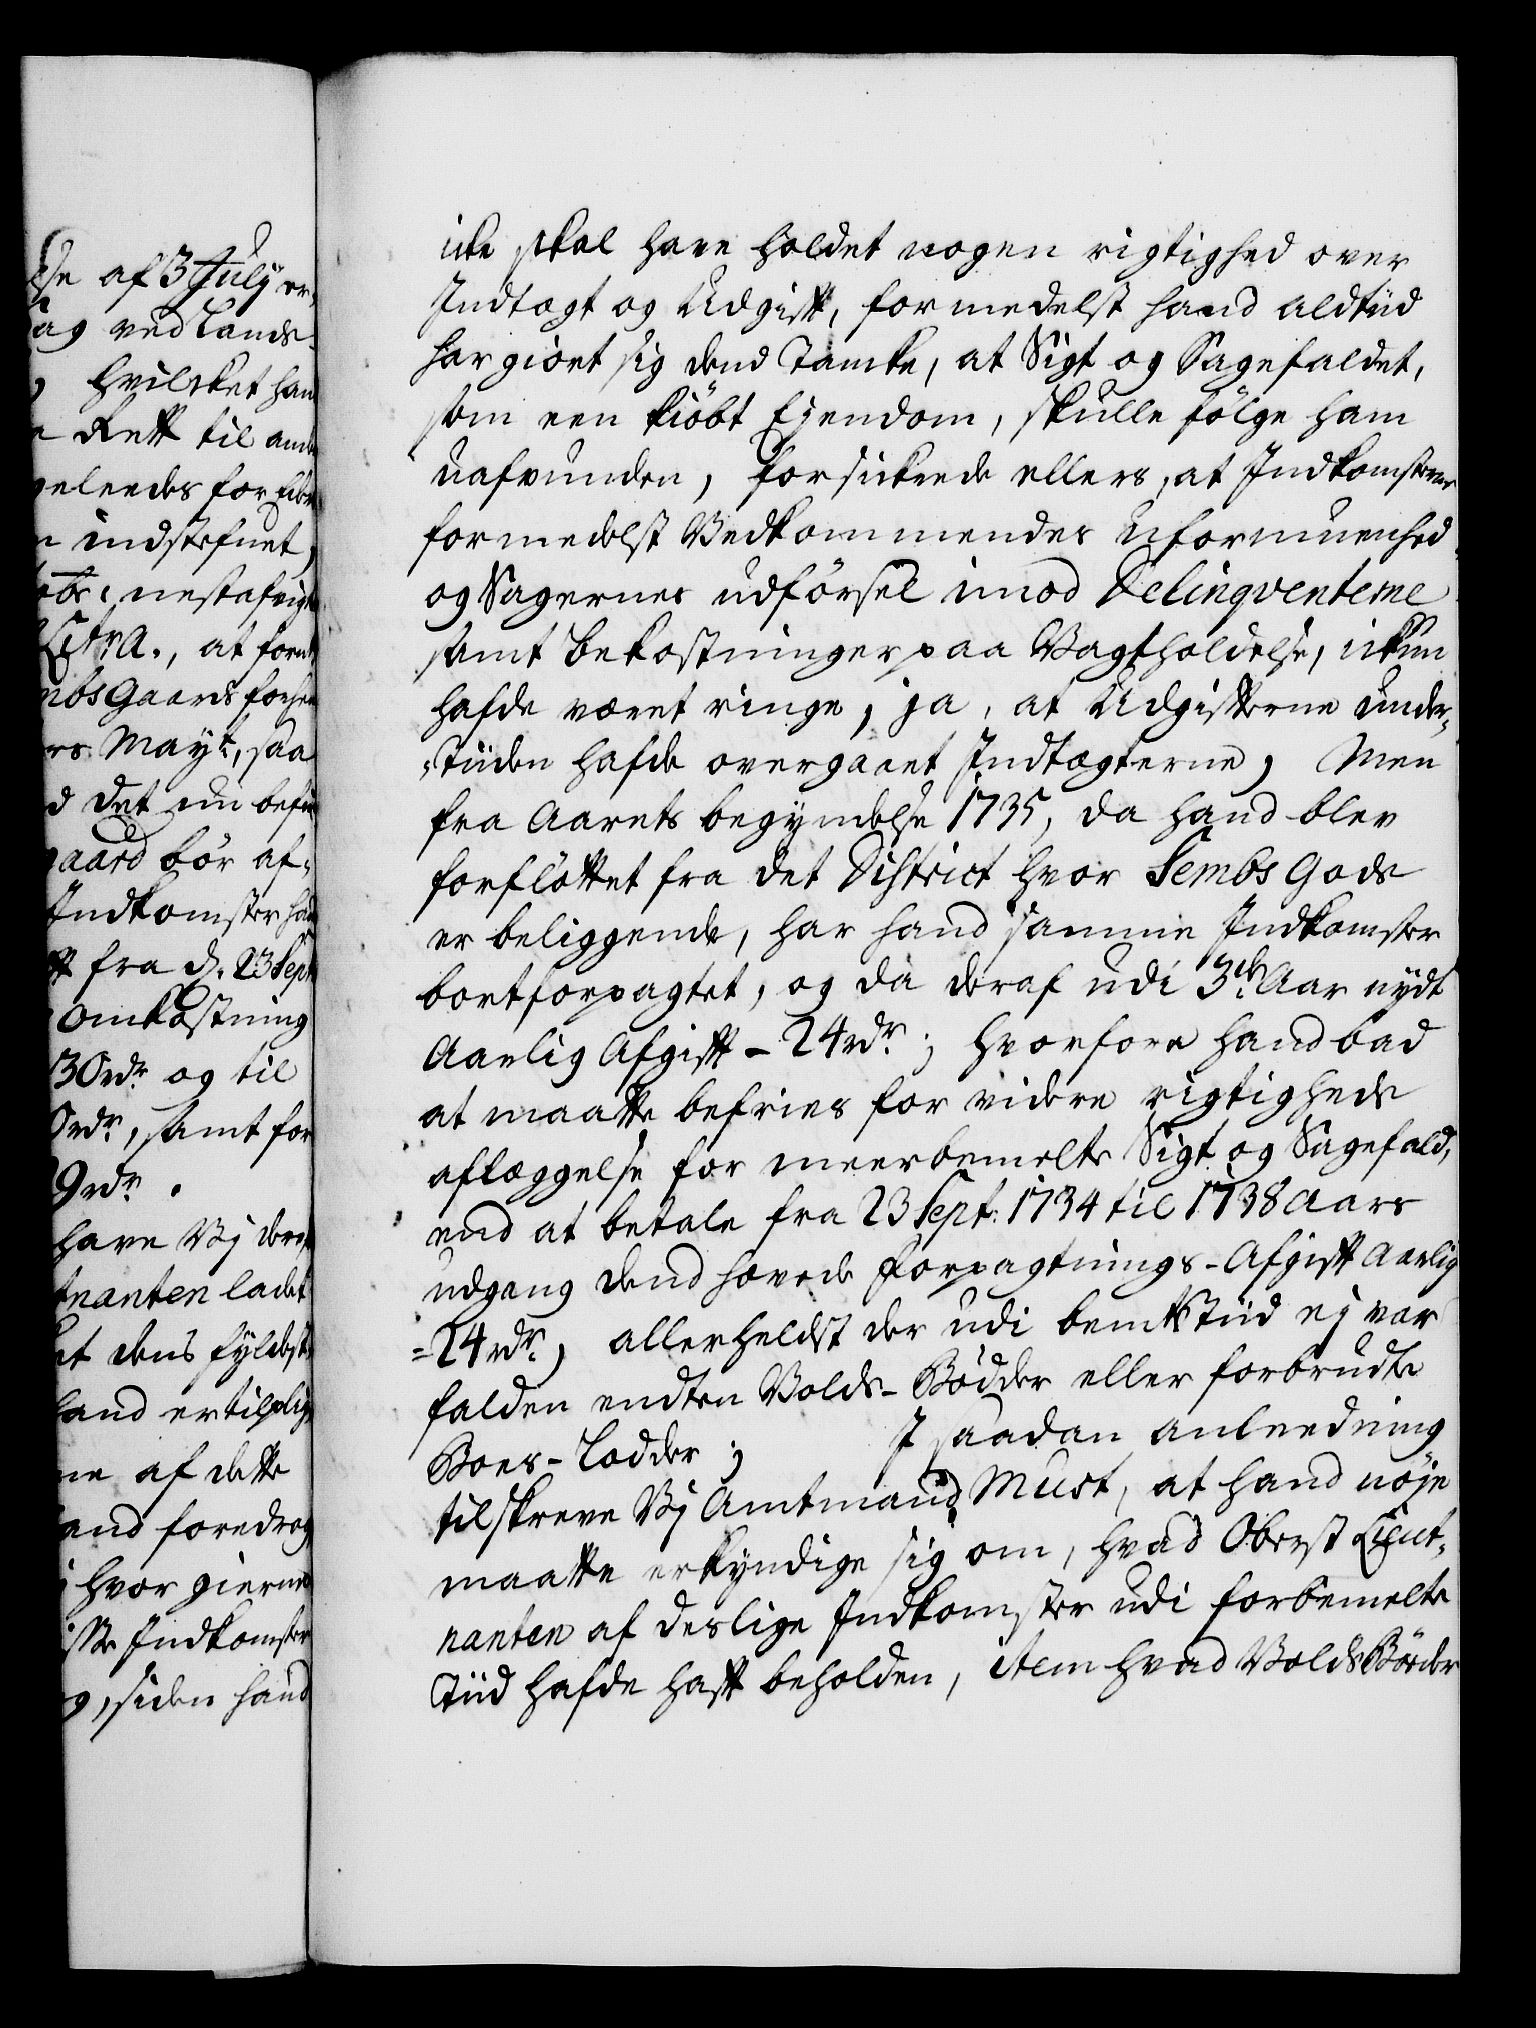 lse af 3 July er,
ag ved Lands-
, hvilcket han
e Rett til ande
geleedes for Eib
n indstefnet,
ebr: nestafvigte
Litr A., at form
mbs Gaards forhen
rs Mayt, saa
d det nu befin
gaard bör af,
Indkomster han
tt fra d. 23 Sept
omkostning
30rdr og til
0rdr, samt for
9rdr.
have Vj deref
tnanten ladet
et dens fyldest
hand er tilplig
ne af dette
hand foredrog
j hvor gierne
isse Indkomster
g, siden hand
icke skal have holdet nogen rigtighed over
Indtægt og Udgift, formedelst hand aldtiid
har giort sig dend Tancke, at Sigt og Sagefaldet,
som een kiöbt Ejendom, skulle fölge ham
uafvunden, forsickrede ellers, at Indkomsterne
formedelst Vedkommendes uformuenhed
og Sagernes udförsel imod Delinqventerne
samt bekostninger paa Vagtholdelse, ickun
hafde været ringe, ja, at Udgifterne under,
,tiiden hafde overgaaet Indtægterne, Men
fra Aarets begyndelse 1735, da hand blev
forflöttet fra det District hvor Sembs Gods
er beliggende, har hand samme Indkomster
bortforpagtet, og da deraf udi 3de Aar nydt
Aarlig Afgift - 24rdr; hvorfore hand bad
at maatte befries for videre rigtigheds
aflæggelse for meerbemelte Sigt og Sagefald,
end at betale fra 23 Sept: 1734 til 1738 Aars
udgang dend hævede Forpagtnings-Afgift Aarlig
=24rdr, allerheldst der udi bemte Tiid ej var
falden endten Volds-Bödder eller forbrudte
Boes-Lodder; I saadan anleedning
tilskreve Vj Amtmand Must, at hand nöje
maatte erkyndige sig om, hvad Oberst Lieut,
nanten af deslige Indkomster udi forbemelte
Tiid hafde haft beholden, item hvad Volds Böder